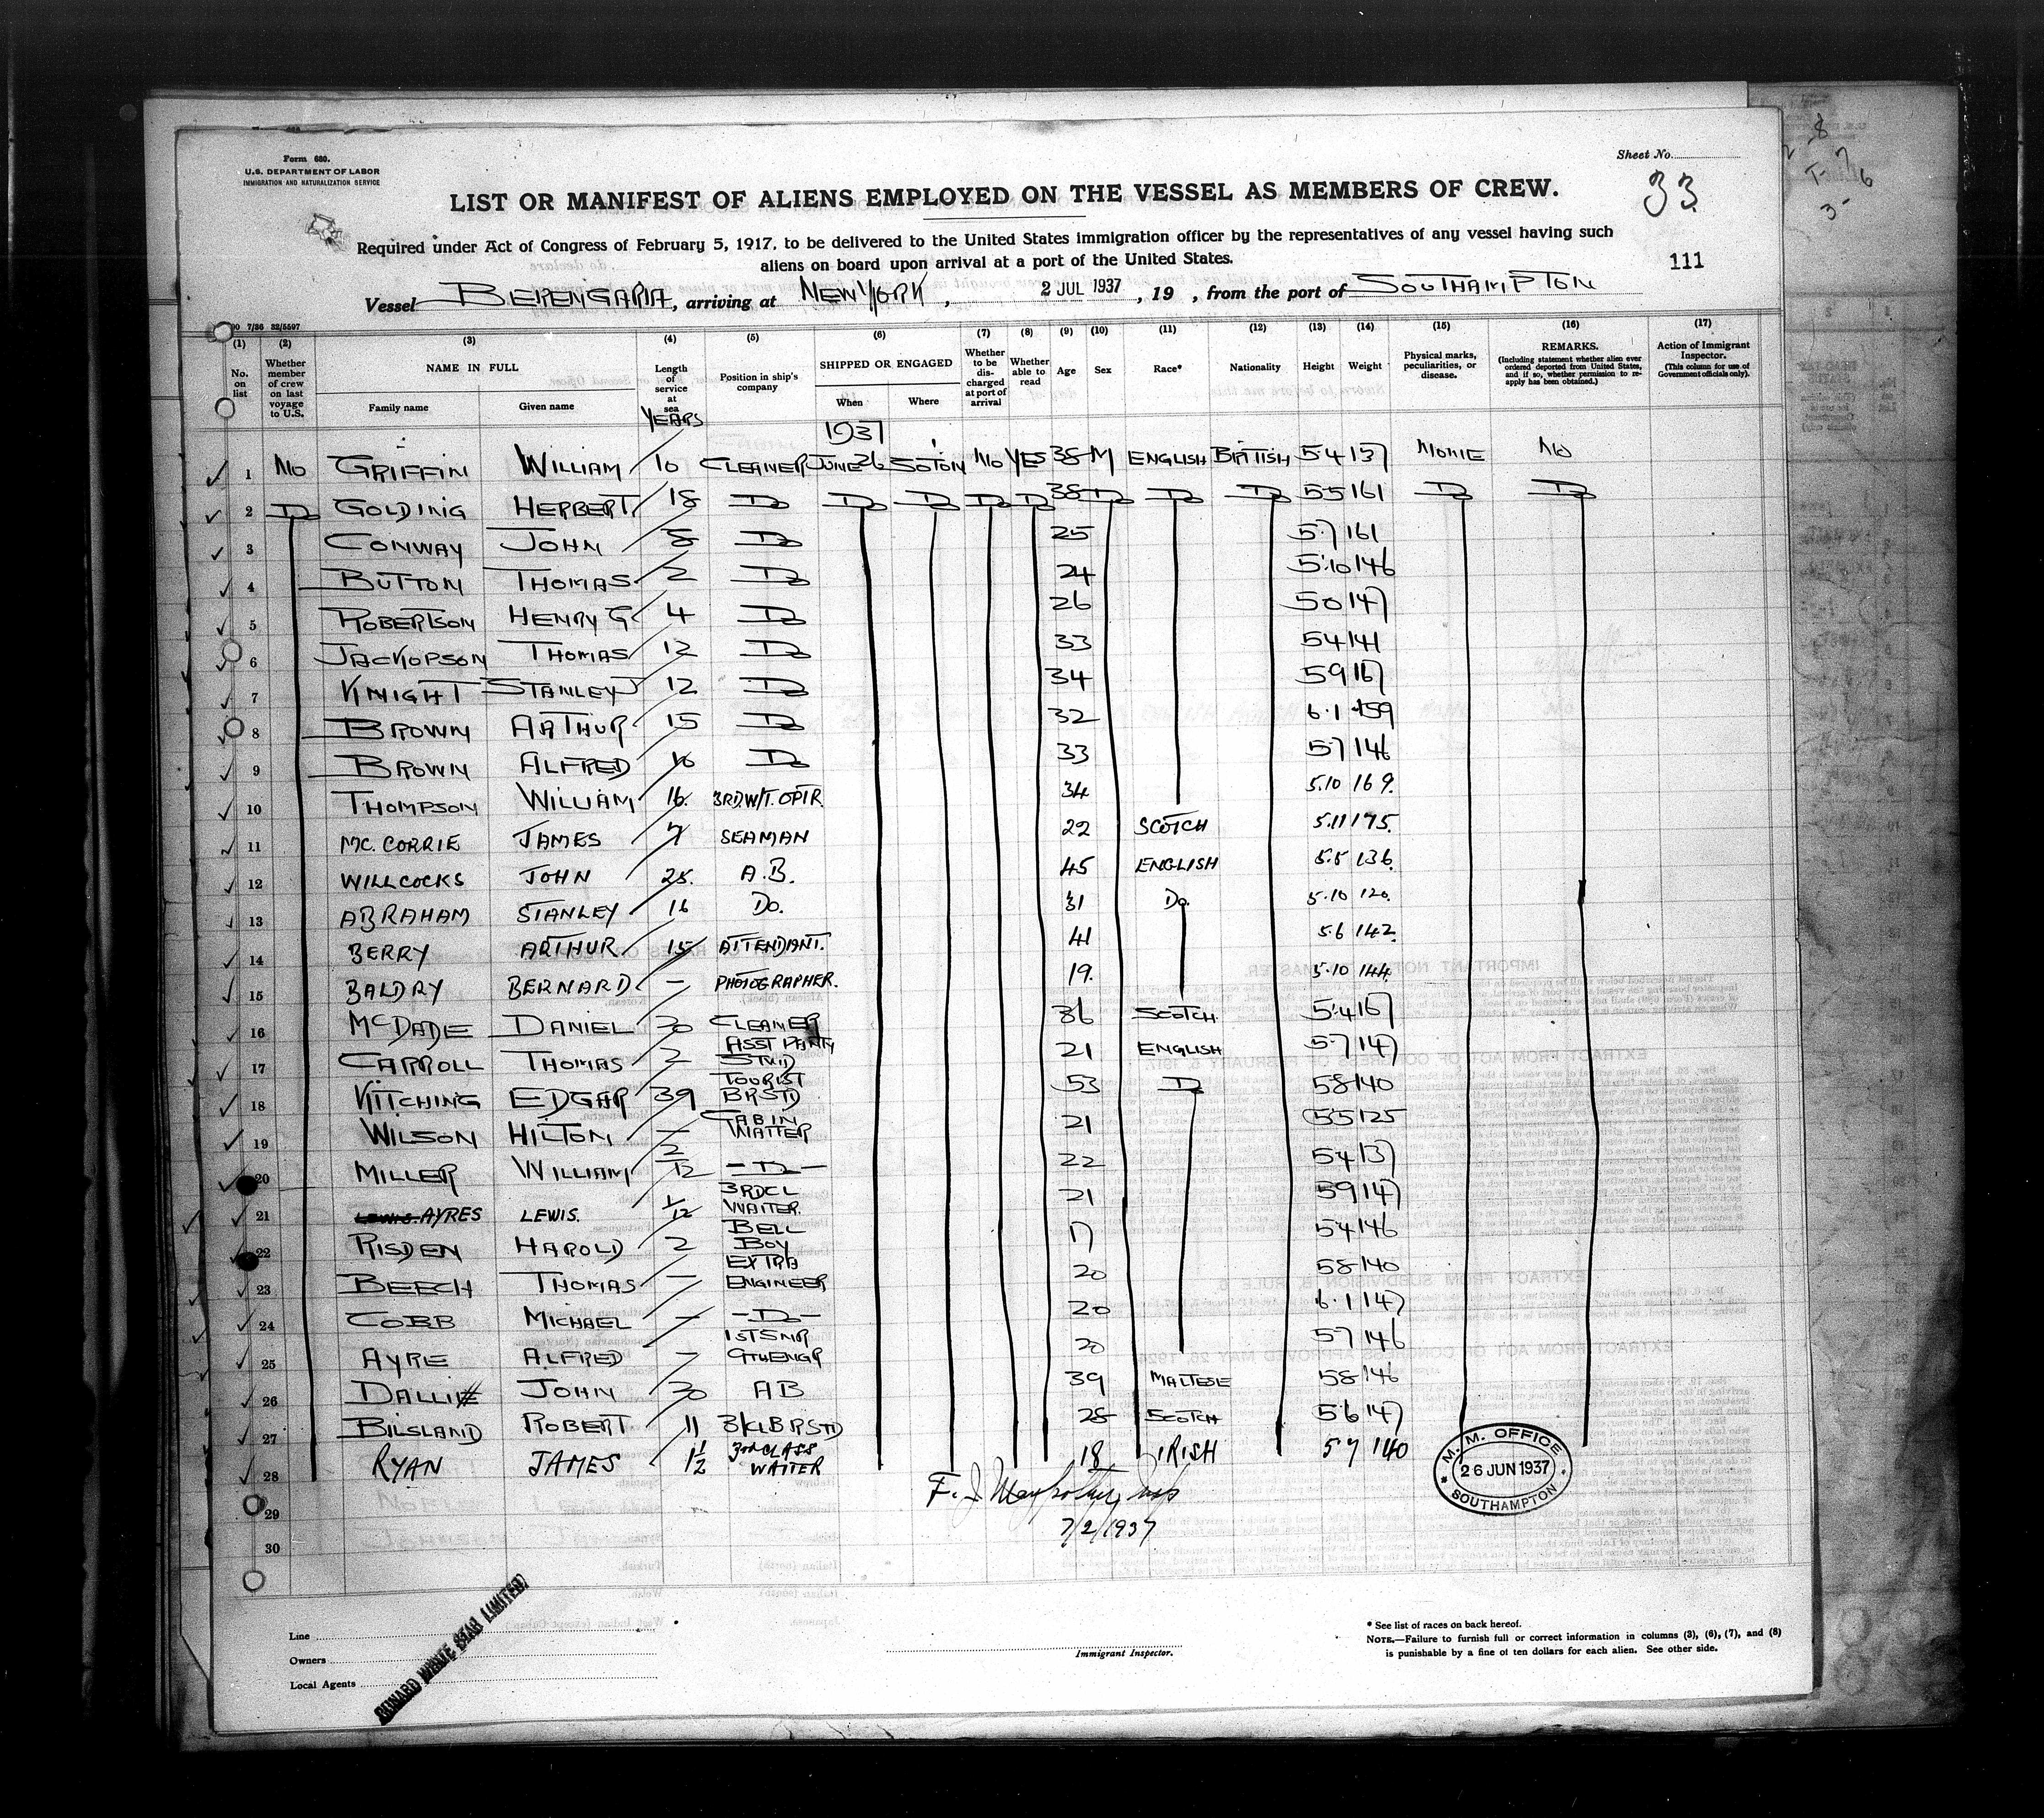 Form 680.
U.S. DEPARTMENT OF LABOR
IMMIGRATION AND NATURALIZATION SERVICE
Sheet No.
33
LIST OR MANIFEST OF ALIENS EMPLOYED ON THE VESSEL AS MEMBERS OF CREW.
Required under Act of Congress of February 5, 1917, to be delivered to the United States immigration officer by the representatives of any vessel having such
aliens on board upon arrival at a port of the United States.
111
Vessel BERENGARIA, arriving at NEW YORK, 2 JUL 1937, 19 , from the port of SOUTHAMPTON
7/36 32/5597
(1) No. on list (2) Whether member of crew on last voyage to U.S. (3) NAME IN FULL Family name Given name (4) Length of service at sea YEARS (5) Position in ship's company (6) SHIPPED OR ENGAGED When Where (7) Whether to be discharged at port of arrival (8) Whether able to read (9) Age (10) Sex (11) Race* (12) Nationality (13) Height (14) Weight (15) Physical marks, peculiarities, or disease. (16) REMARKS. (Including statement whether alien ever ordered deported from United States, and if so, whether permission to reapply has been obtained.) (17) Action of Immigrant Inspector. (This column for use of Government officials only).
1937
1 NO GRIFFIN WILLIAM 10 CLEANER JUNE 26 SOTON NO YES 38 M ENGLISH BRITISH 5 4 137 NONE NO
2 Do GOLDING HERBERT 18 Do Do Do Do Do 38 Do Do Do 5 5 161 Do Do
3 CONWAY JOHN 8 Do 25 5·7 161
4 BUTTON THOMAS 2 Do 24 5·10 146
5 ROBERTSON HENRY G 4 Do 26 5 0 147
6 JACKOPSON THOMAS 12 Do 33 5 4 141
7 KNIGHT STANLEY J 12 Do 34 5 9 167
8 BROWN ARTHUR 15 Do 32 6·1 159
9 BROWN ALFRED 16 Do 33 5 7 146
10 THOMPSON WILLIAM 16. 3RD.W/T. OPTR. 34 5.10 169.
11 MC. CORRIE JAMES 7 SEAMAN 22 SCOTCH 5.11 175.
12 WILLCOCKS JOHN 25. A.B. 45 ENGLISH 5.5 136.
13 ABRAHAM STANLEY 16 Do. 31 Do. 5.10 120.
14 BERRY ARTHUR 15 ATTENDANT. 41 5.6 142.
15 BALDRY BERNARD — PHOTOGRAPHER. 19. 5.10 144.
16 McDADE DANIEL 30 CLEANER 36 SCOTCH 5·4 167
17 CARROLL THOMAS 2 ASST PANTY STWD 21 ENGLISH 5·7 147
18 KITCHING EDGAR 39 TOURIST BRSTD 53 Do 5 8 140
19 WILSON HILTON — CABIN WAITER 21 5 5 125
20 MILLER WILLIAM 2/12 — Do — 22 5 4 137
21 LEWIS. AYRES LEWIS. 1/12 3RD CL WAITER. 21 5 9 147
22 RISDEN HAROLD 2 BELL BOY 17 5 4 146
23 BEECH THOMAS — EXTRA ENGINEER 20 5 8 140
24 COBB MICHAEL — — Do — 20 6·1 147
25 AYRE ALFRED — 1ST SNR 9TH ENGR 20 5 7 146
26 JOHN 30 AB 39 MALTESE 5 8 146
27 BILSLAND ROBERT 11 3/CL BRSTD 28 SCOTCH 5 6 147
28 RYAN JAMES 1 1/2 3rd CLASS WAITER 18 IRISH 5 7 140
29
30
7/2/1937
M. M. OFFICE
26 JUN 1937
SOUTHAMPTON
Line
Owners
Local Agents
CUNARD WHITE STAR LIMITED
Immigrant Inspector.
* See list of races on back hereof.
NOTE.—Failure to furnish full or correct information in columns (3), (6), (7), and (8)
is punishable by a fine of ten dollars for each alien. See other side.